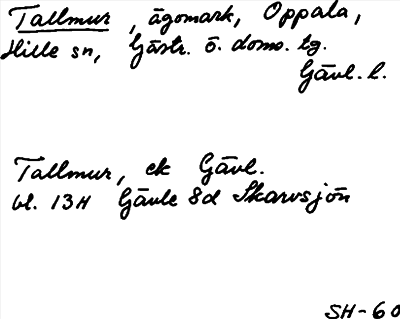 Tallmur, ägomark, Oppala,
Hille sn, Gästr. ö. doms. tg.
Gävl. l.
Tallmur, ek Gävl.
bl. 13H Gävle 8d Skarvsjön
SH-60